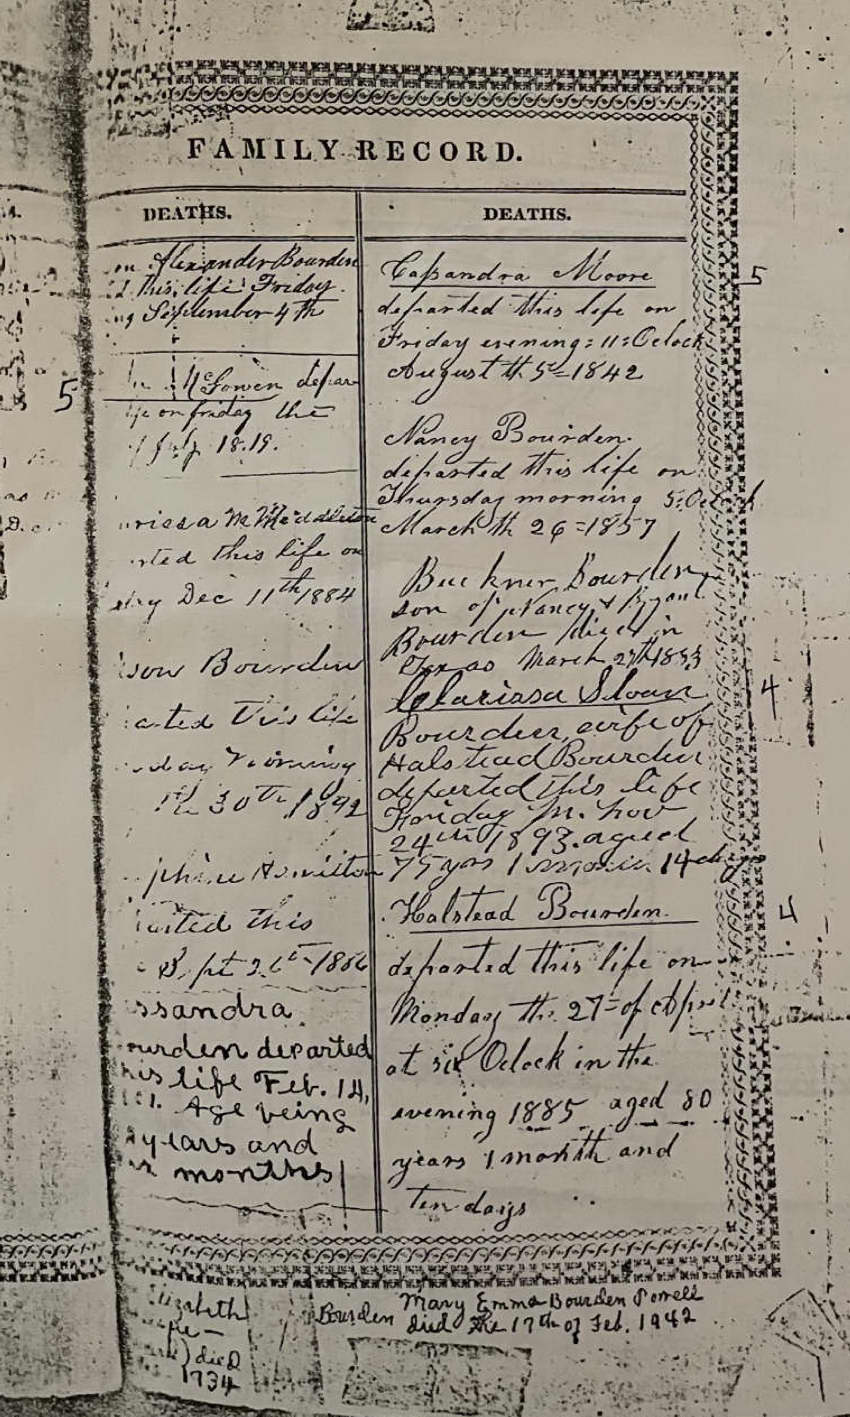 FAMILY RECORD.
DEATHS.
on Alexander Bourden
this life Friday
September 4th
McGowen depar
life on friday the
July 1819.
M Middleton
rted this life on
Dec 11th 1884
son Bourden
arted this life
day morning
30th 1892
phine Hamilton
arted this
Sept 26th 1886
ssandra
ourden departed
his life Feb. 14,
Age being
years and
months
5
DEATHS.
Cassandra Moore
departed this life on
Friday evening: 11: Oclock
August th 5=1842
Nancy Bourden
departed this life on
Thursday morning 5: Oclock
March th 26=1857
Buckner Bourden
son of Nancy & Bryant
Bourden died in
Texas March 27th
Clarissa Sloan
Bourden, wife of
Halstead Bourden
departed this life
Nov
24th 1893. aged
75 yrs 1 14 days
Halstead Bourden
departed this life on
Monday the 27th of April
at six Oclock in the
evening 1885 aged 80
years 1 month and
ten days
5
4
4
Elizabeth
died
1934
Bourden
Mary Emma Bourden Powell
died the 17th of Feb. 1942